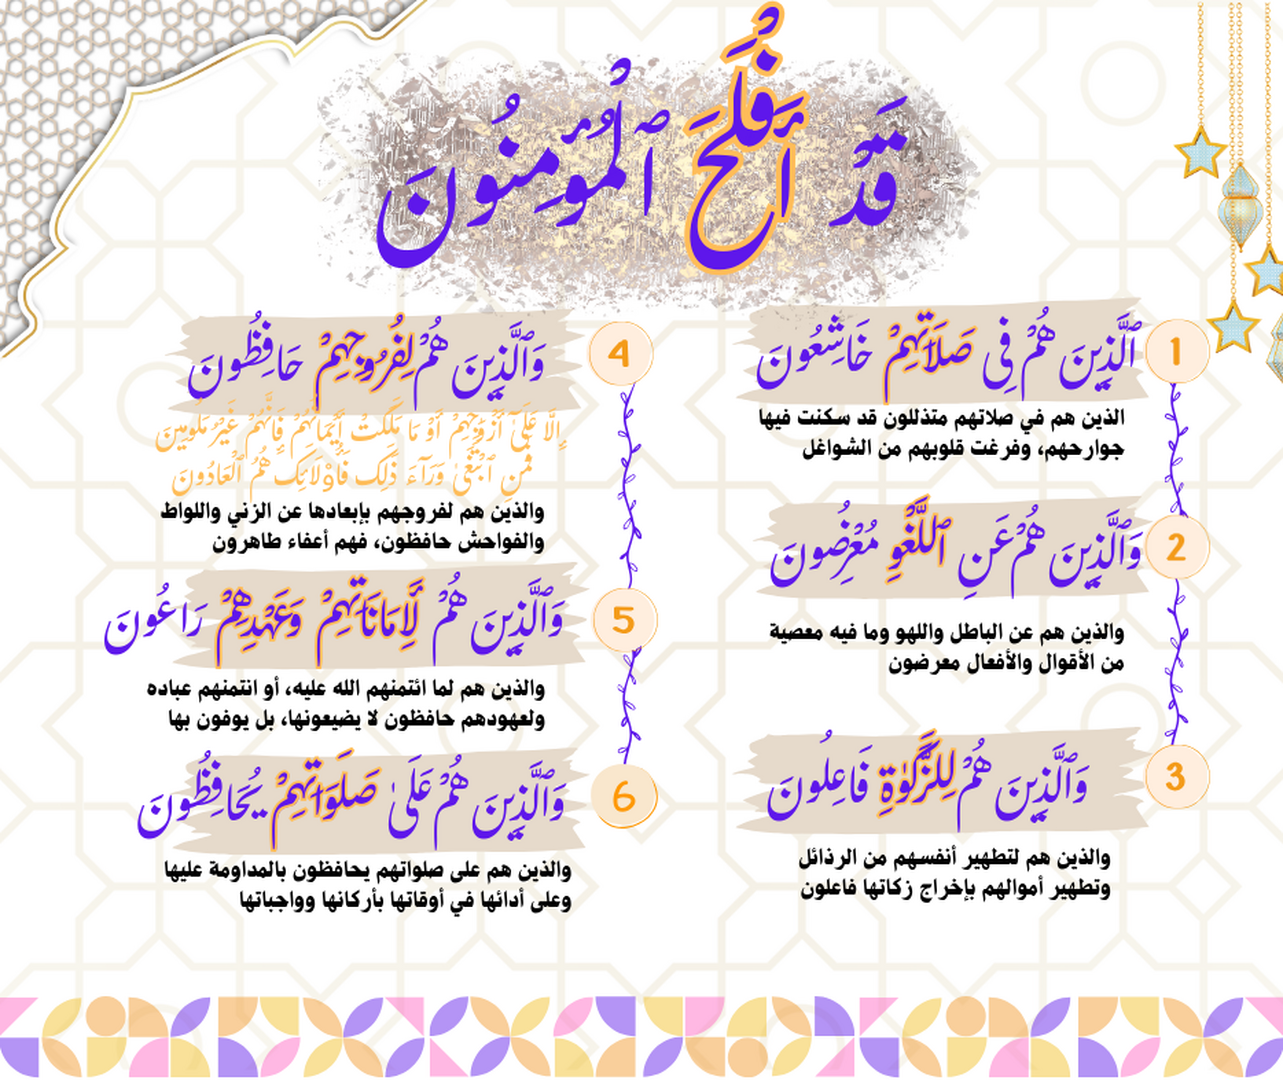 قَدْ أَفْلَحَ ٱلْمُؤْمِنُونَ
1
ٱلَّذِينَ هُمْ فِي صَلَاتِهِمْ خَاشِعُونَ
الذين هم في صلاتهم متذللون قد سكنت فيها
جوارحهم، وفرغت قلوبهم من الشواغل
2
وَٱلَّذِينَ هُمْ عَنِ ٱللَّغْوِ مُعْرِضُونَ
والذين هم عن الباطل واللهو وما فيه معصية
من الأقوال والأفعال معرضون
3
وَٱلَّذِينَ هُمْ لِلزَّكَوٰةِ فَاعِلُونَ
والذين هم لتطهير أنفسهم من الرذائل
وتطهير أموالهم بإخراج زكاتها فاعلون
4
وَٱلَّذِينَ هُمْ لِفُرُوجِهِمْ حَافِظُونَ
إِلَّا عَلَىٰٓ أَزْوَٰجِهِمْ أَوْ مَا مَلَكَتْ أَيْمَانُهُمْ فَإِنَّهُمْ غَيْرُ مَلُومِينَ
فَمَنِ ٱبْتَغَىٰ وَرَآءَ ذَٰلِكَ فَأُو۟لَٰٓئِكَ هُمُ ٱلْعَادُونَ
والذين هم لفروجهم بإبعادها عن الزني واللواط
والفواحش حافظون، فهم أعفاء طاهرون
5
وَٱلَّذِينَ هُمْ لِأَمَانَاتِهِمْ وَعَهْدِهِمْ رَاعُونَ
والذين هم لما ائتمنهم الله عليه، أو ائتمنهم عباده
ولعهودهم حافظون لا يضيعونها، بل يوفون بها
6
وَٱلَّذِينَ هُمْ عَلَىٰ صَلَوَاتِهِمْ يُحَافِظُونَ
والذين هم على صلواتهم يحافظون بالمداومة عليها
وعلى أدائها في أوقاتها بأركانها وواجباتها